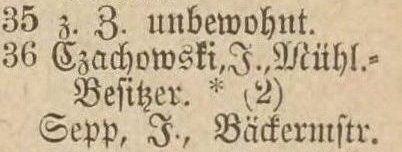 35 z. Z. unbewohnt.
36 Czachowski, J., Mühl.-
Besitzer. * (2)
Sepp, J., Bäckermstr.